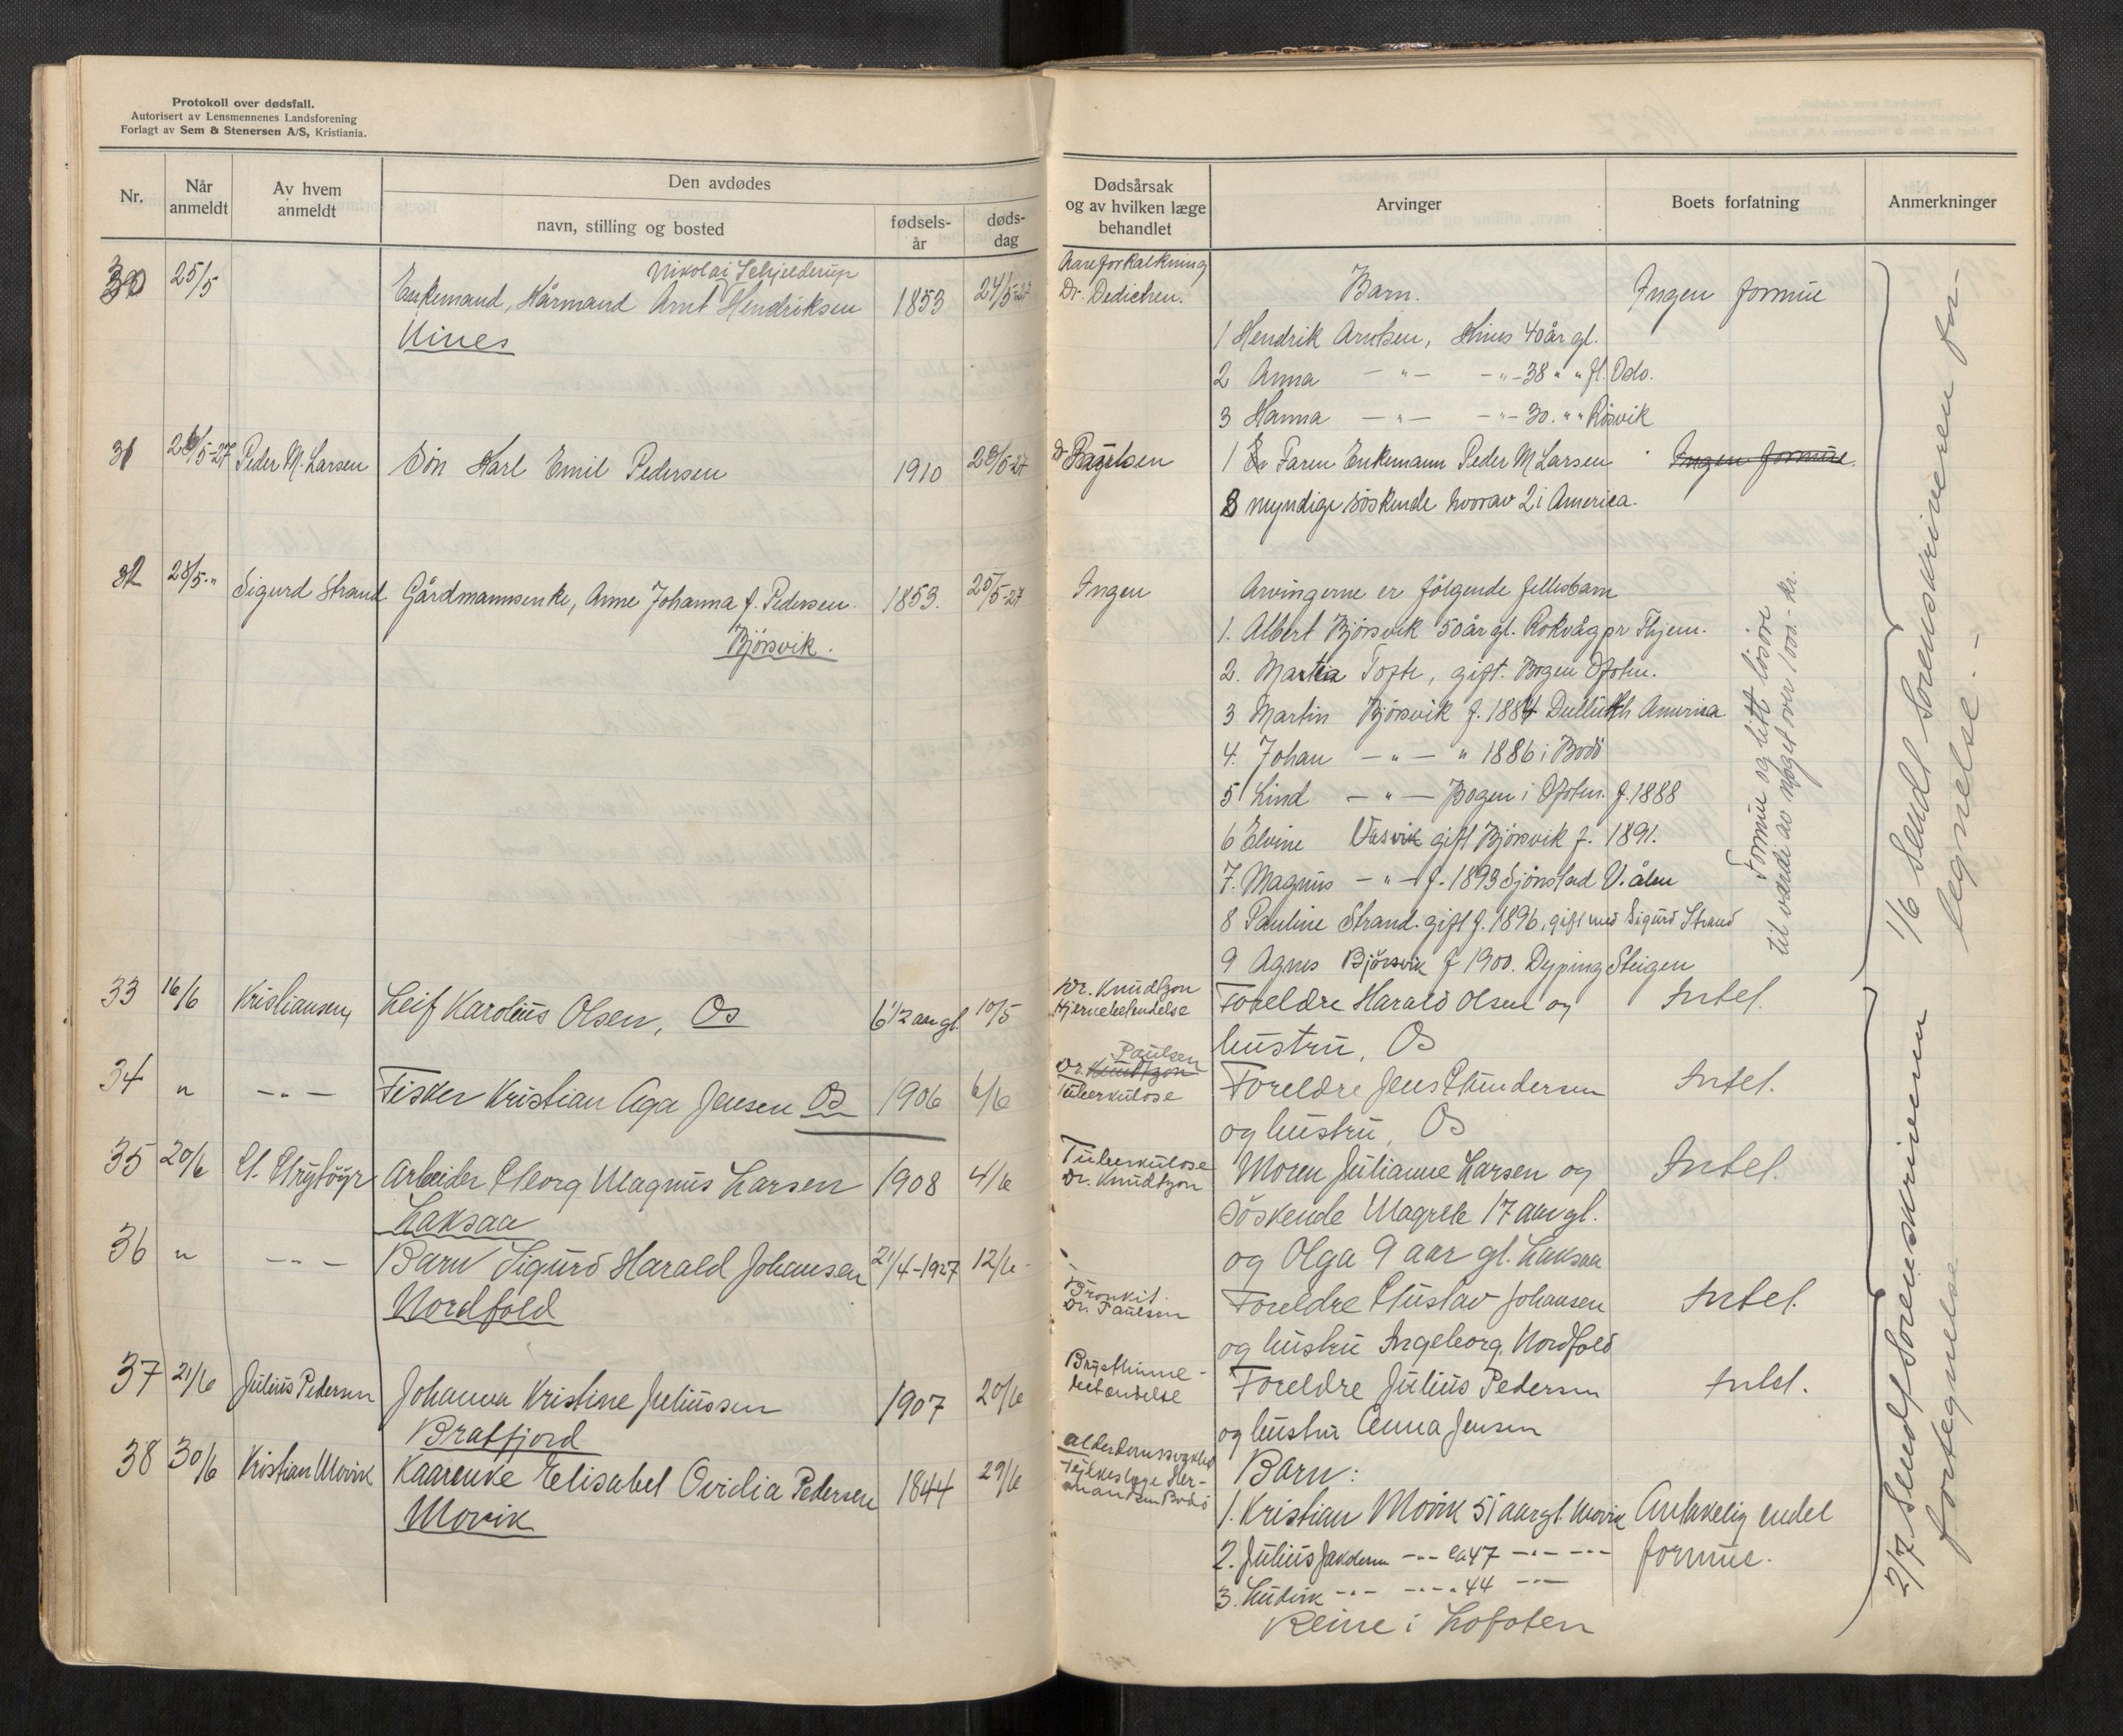 Protokoll over dødsfall.
Autorisert av Lensmennenes Landsforening
Forlagt av Sem & Stenersen A/S, Kristiania.
Nr.
Når anmeldt
Av hvem anmeldt
Den avdødes
navn, stilling og bosted
fødsels-år
døds-dag
Dødsårsak og av hvilken læge behandlet
Arvinger
Boets forfatning
Anmerkninger
30 25/5 Enkemand, Kårmand Arnt Nikolai Schjelderup Hendriksen 1853 24/5-27
Hines
Aareforkalkning
Dr. Dedichen.
Barn.
Ingen formue
1 Hendrik Arntsen, Hines 40 år gl.
2 Anna — " — - " - 38 " " fl. Oslo.
3 Hanna — " — - " - 30. " " Røsvik
31 26/5-27 Peder M. Larsen Søn Karl Emil Pedersen 1910 23/5-27
Dr Paulsen
1 Faren Enkemann Peder M Larsen
Ingen formue.
8 myndige söskende hvorav 2 i America.
32 28/5 " Sigurd Strand Gårdmannsenke, Anne Johanna f. Pedersen. 1853. 25/5-27
Bjørsvik.
Ingen
Arvingerne er følgende fellesbarn
1. Albert Bjørsvik 50 år gl. Rokvåg pr Fljem.
2. Martia Tofte, gift. Bogen Ofoten.
3 Martin Bjørsvik f. 1884 Dulluth America
4. Johan — " — " 1886 i Bodö
5 Lind — " — Bogen i Ofoten. f. 1888
6 Elvine Vasvik gift Bjørsvik f. 1891.
7. Magnus — " — f. 1893 Sjönstad V. ålen
8 Pauline Strand. gift f. 1896, gift med Sigurd Strand
9 Agnes Bjørsvik f 1900. Dyping Steigen
Formue og litt lösöre
til værdi av noget over 1000.- kr.
1/6 Sendt Sorenskriveren for-
tegnelse. -
33 16/6 Kristiansen, Leif Karolius Olsen, Os 6 1/2 aar gl. 10/5
Dr. Knudtzon
Hjernebetendelse
Foreldre Harald Olsen og
hustru, Os
Intet.
34 " - " - Fisker Kristian Aga Jensen Os 1906 6/6
Dr. Knudtzon Paulsen
Tuberkulose
Foreldre Jens Gundersen
og hustru, Os
Intet.
35 20/6 Arbeider Georg Magnus Larsen 1908 4/6
Laksaa
Tuberkulose
Dr. Knudtzon
Moren Julianne Larsen og
söskende Magrete 17 aar gl.
og Olga 9 aar gl. Laksaa
Intet.
36 " - " - Barn Sigurd Harald Johansen 21/4-1927 12/6
Nordfold
Bronkit.
Dr. Paulsen
Foreldre Gustav Johansen
og hustru Ingeborg, Nordfold
Intet.
37 21/6 Julius Pedersen Johanna Kristine Juliussen 1907 20/6
Bratfjord
Brysthinne-
betendelse
Foreldre Julius Pedersen
og hustru Anna Jensen
Intet.
38 30/6 Kristian Movik Kaarenke Elisabet Ovidia Pedersen 1844 29/6
Movik
Alderdomssvakhet
Barn:
1. Kristian Movik 51 aar gl. Movik
Antakelig endel
formue.
2. Julius Jakobsen - " - ca 47 - " - - " -
3. Ludvik - " - - " - 44 - " -
Reine i Lofoten
2/7 Sendt Sorenskriveren
fortegnelse